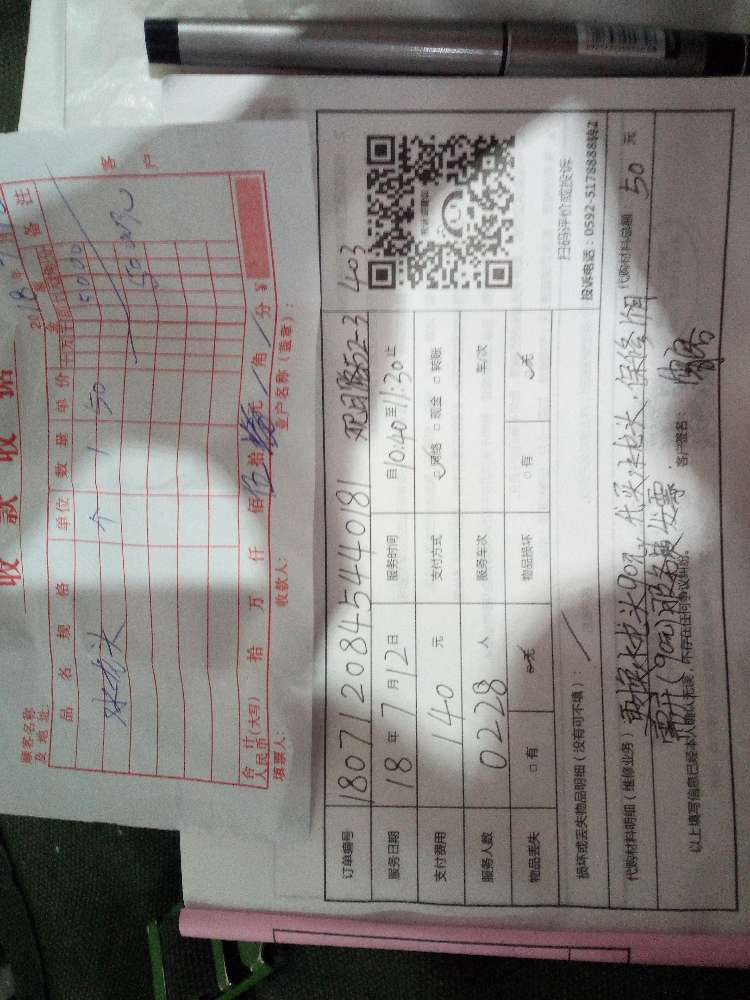 收款收据
2018年7月
顾客名称
及地址
品名规格 单位 数量 单价 金额 备注
水龙头 个 1 50 5000
合计
人民币(大写) 拾 万 仟 佰 拾 元 角 分 ¥
填票人: 收款人: 业户名称(盖章):
客户
订单编号 1807120845440181 403
服务日期 18年7月12日 服务时间 自10:40至11:30止
支付费用 140元 支付方式 网络 □现金 □转账
服务人数 0228人 服务车次 车/次
物品丢失 □有 无 物品损坏 □有 无
扫码评价或投诉
投诉电话:0592-5178888转2
损坏或丢失物品明细(没有可不填): /
代购材料明细(维修业务) 更换水龙头90元,代买水龙头,保修1个月 代购材料总额 50 元
以上填写信息已经本人确认无误,不存在任何争议纠纷。 客户签名: